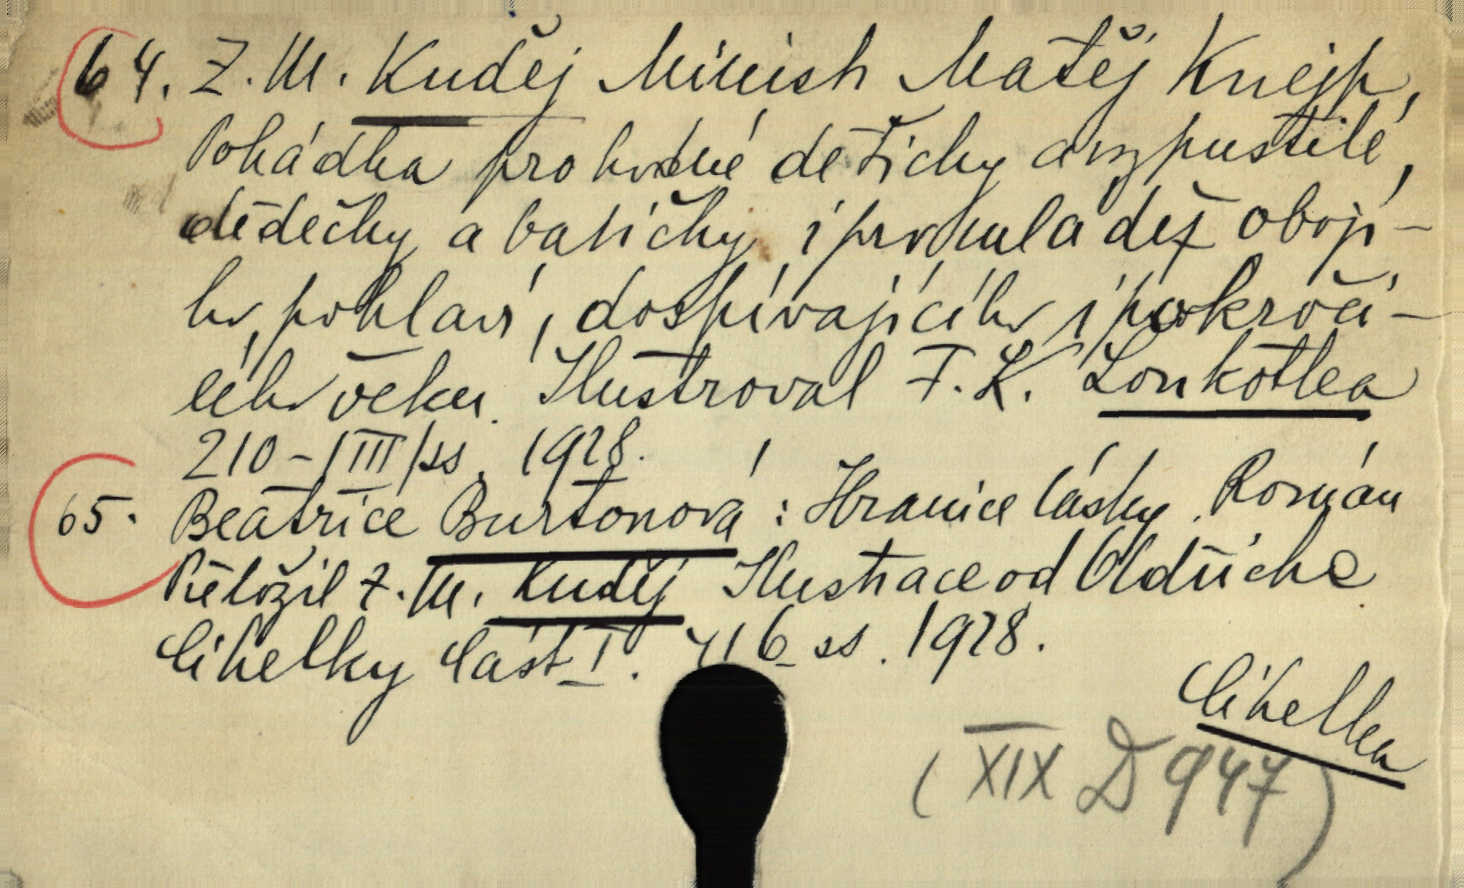 64. Z. M. Kuděj Mimish Matěj Knejp,
Pohádka pro hodné dětičky a rozpustilé,
dědečky a babičky i pro mládež oboji-
ho pohlaví, dospívajícího i pokroči-
lého věku. Ilustroval F. K. Loukotka
210-/III/ss. 1928.
65. Beatrice Burtonová: Hranice lásky. Román
Přeložil Z. M. Kuděj Ilustrace od Oldřicha
Cihelky Část I. 416 ss. 1928.
Cihelka
(XIX D 947)